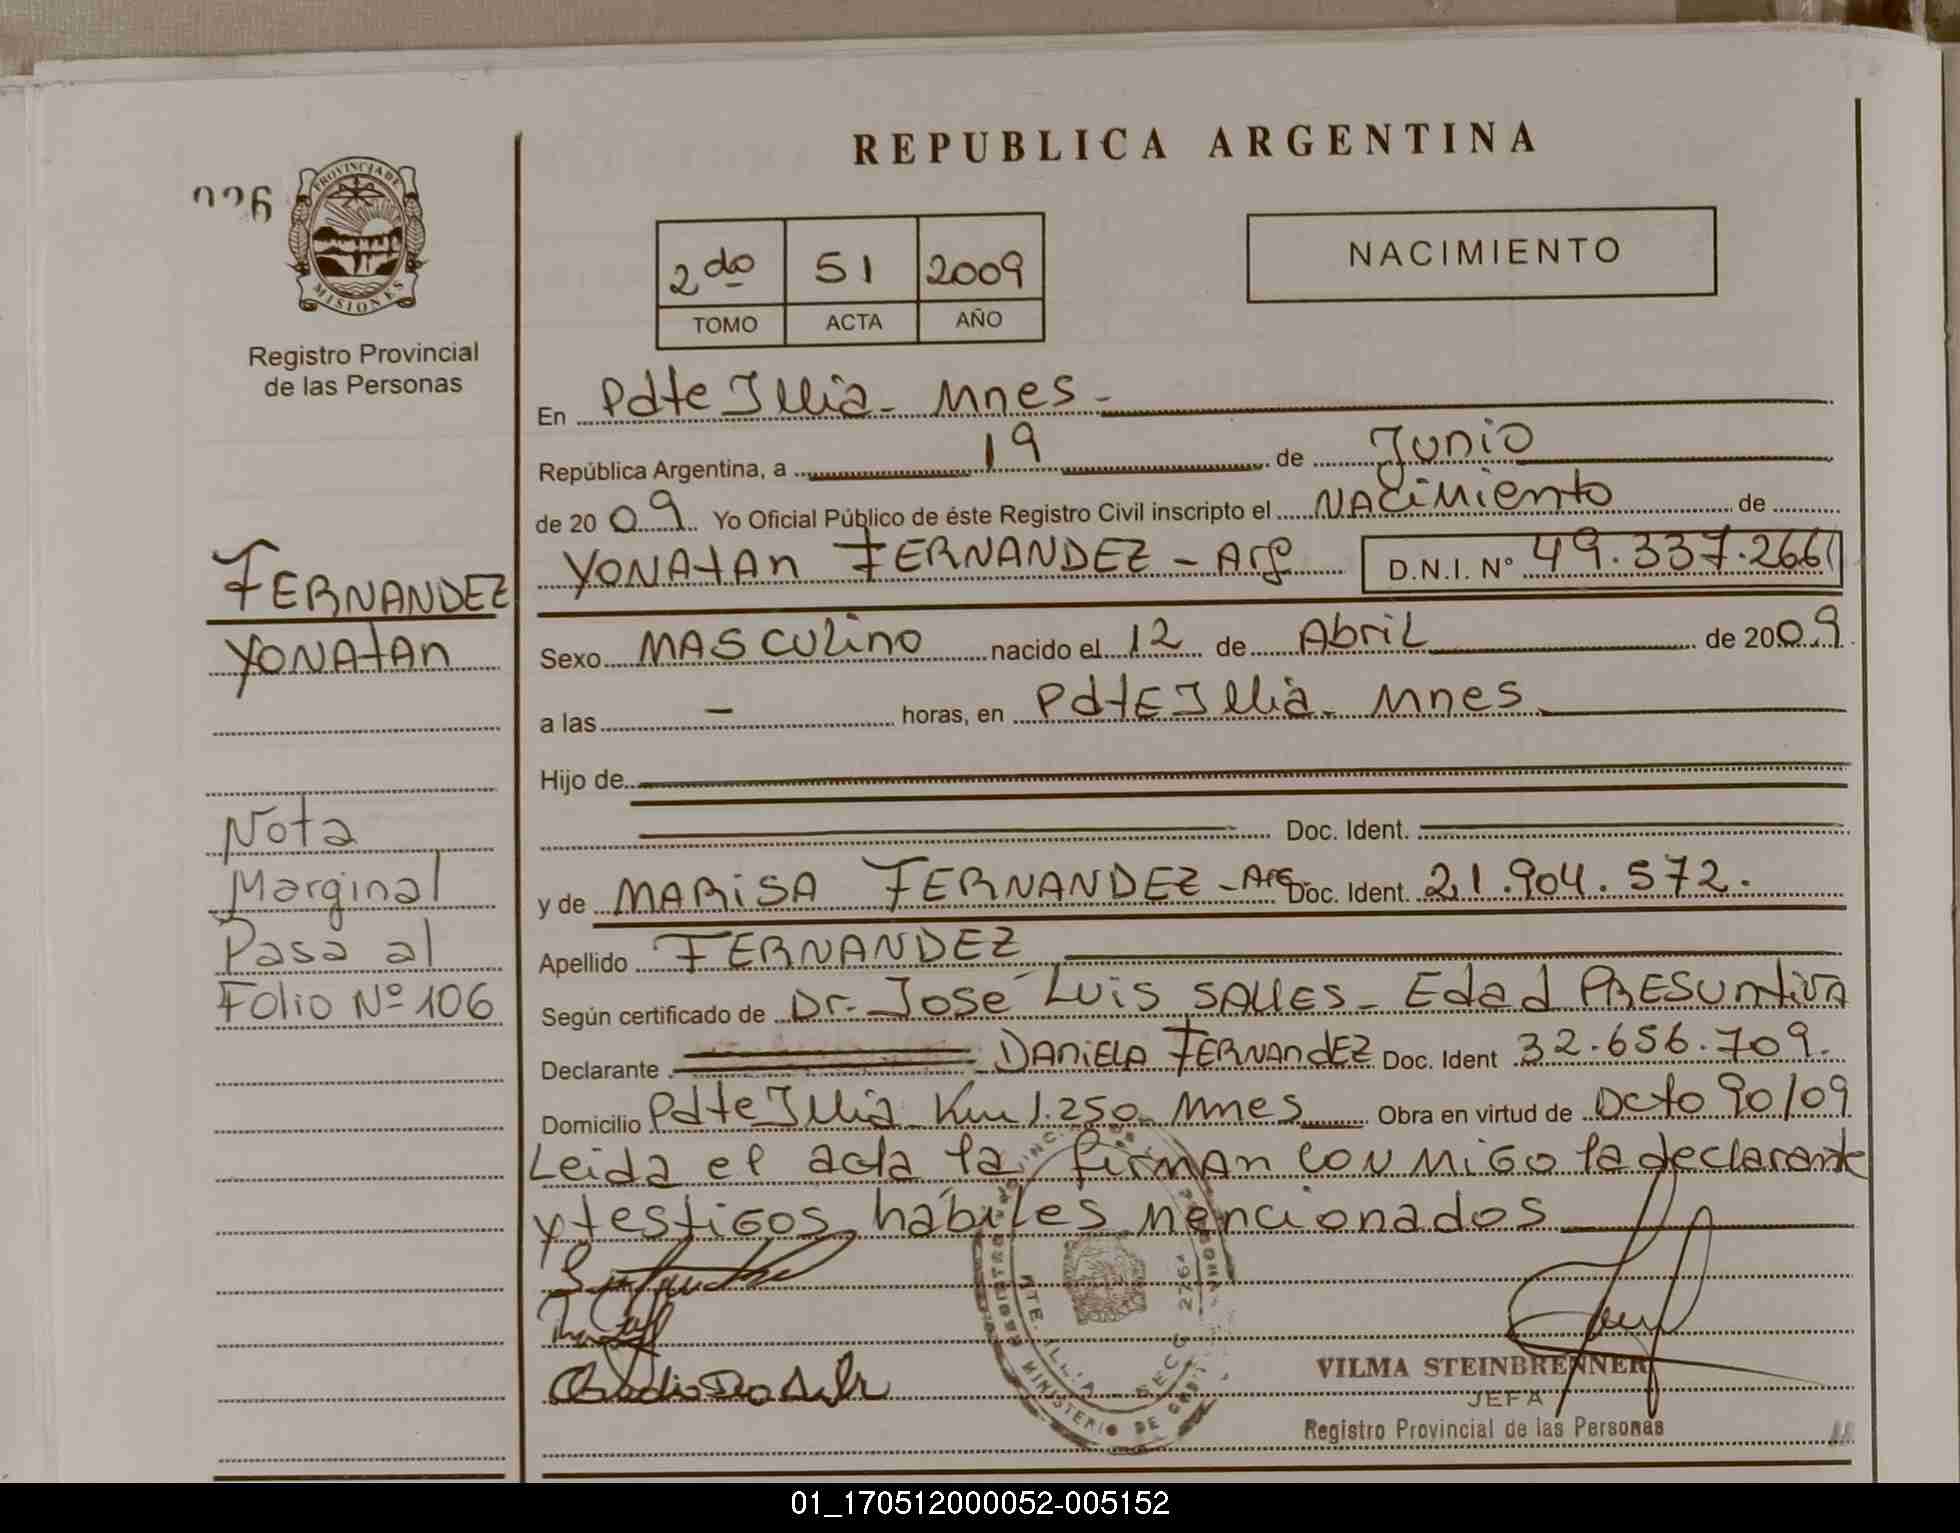 REPUBLICA ARGENTINA
PROVINCIA DE
MISIONES
Registro Provincial
de las Personas
2do 51 2009
TOMO ACTA AÑO
NACIMIENTO
En Pdte Illia - Mnes -
República Argentina, a 19 de Junio
de 2009 Yo Oficial Público de éste Registro Civil inscripto el NACimiento de
YONAtAn FERNANDEZ - Arg D.N.I. N° 49.337.266
Sexo MASCULino nacido el 12 de AbriL de 2009
a las - horas, en PdtE Illia - Mnes
Hijo de
Doc. Ident.
y de MARiSA FERNANDEZ - Arg. Doc. Ident. 21.904.572.
Apellido FERNANDEZ
Según certificado de Dr. Jose Luis SALLES - Edad PRESUntiVA
Declarante DANiELA FERNANdEZ Doc. Ident 32.656.709.
Domicilio Pdte Illia Km 1.250 Mnes Obra en virtud de Dcto 90/09
Leida el acta la firman conmigo la declarante
y testigos habiles mencionados
FERNANDEZ
YONAtAn
Nota
Marginal
Pasa al
Folio Nº 106
VILMA STEINBRENNER
JEFA
Registro Provincial de las Personas
01_170512000052-005152